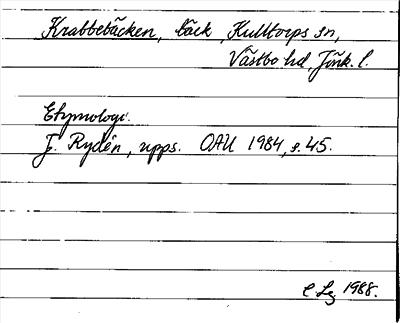 Krabbebäcken, bäck, Kulltorps sn,
Västbo hd, Jönk. l.
Etymologi.
J. Rydén, upps. OAU 1984, s. 45.
1988.